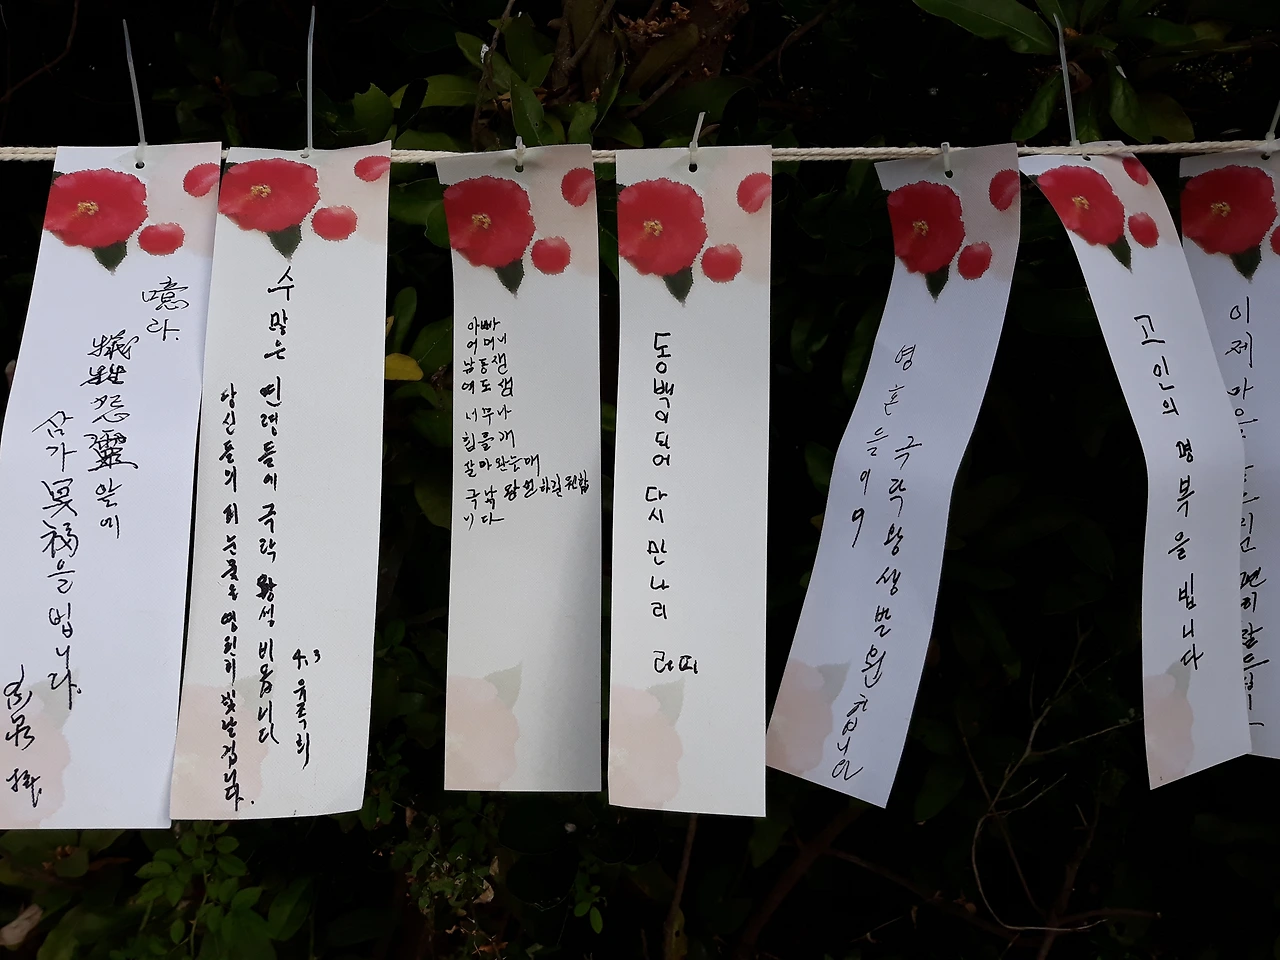 噫라.
犧牲怨靈 앞에
삼가 冥福을 빕니다.
수많은 연령들이 극락 왕생 비옵니다
당신들의 피눈물은 영원히 빛날겁니다.
4.3 유족회
아빠
어머니
남동생
여도생
너무나
힘들개
살아 완는대
극낙 왕생하길 원합
니다
동백이 되어 다시 만나리
영혼들이여
극락왕생 발원합니다
고인의 명복을 빕니다
이제